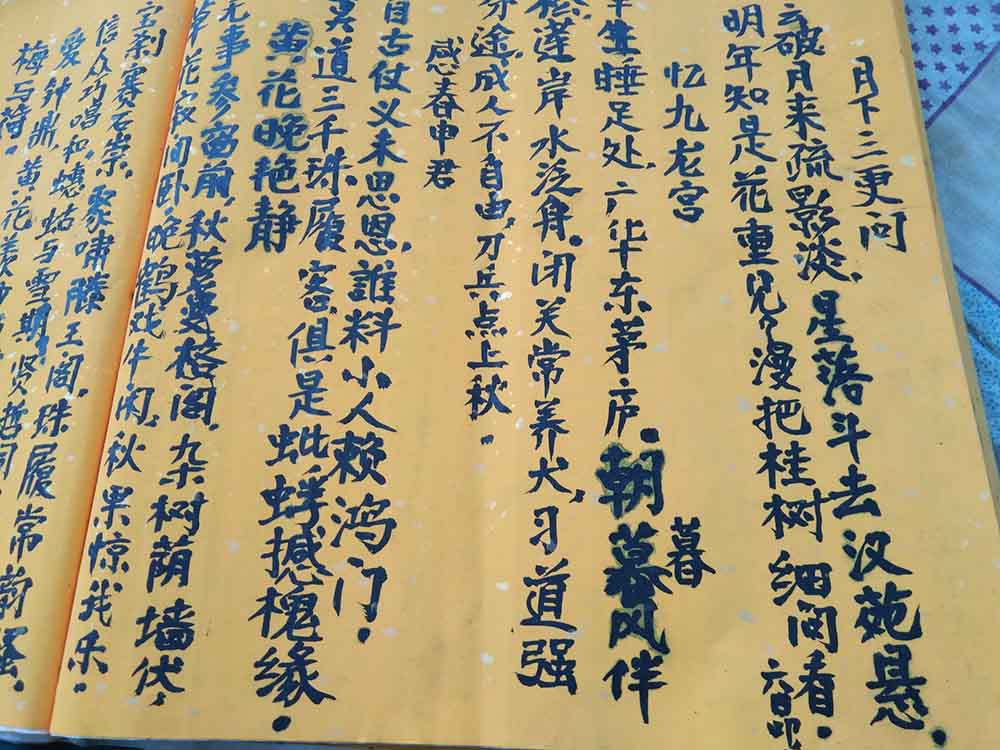 月下三更问
云破月来疏影淡,星落斗去汉苑悬。
明年知是花重见,漫把桂树细问看。
忆九龙宫
半生睡足处,六华东茅庐。朝暮风伴
暮
松蓬岸水泛舟。闭关常养犬,习道强
途。成人不自由,刀兵点上秋。
感春申君
自古仗义未思恩,誰料小人赖鸿门。
莫道三千珠履客,俱是蚍蜉撼槐缘。
黄花晚艳静
无事参窗前,秋萝蔓格阁。杂树荫墙伏,
草花寂间卧。晚鹤戏牛闲,秋果惊我乐。
宝刹赛石崇。聚啸滕王阁。珠履常
信众巧唱和,蟪蛄与雪期,贤哲同
爱钟鼎。黄花
梅与荷。